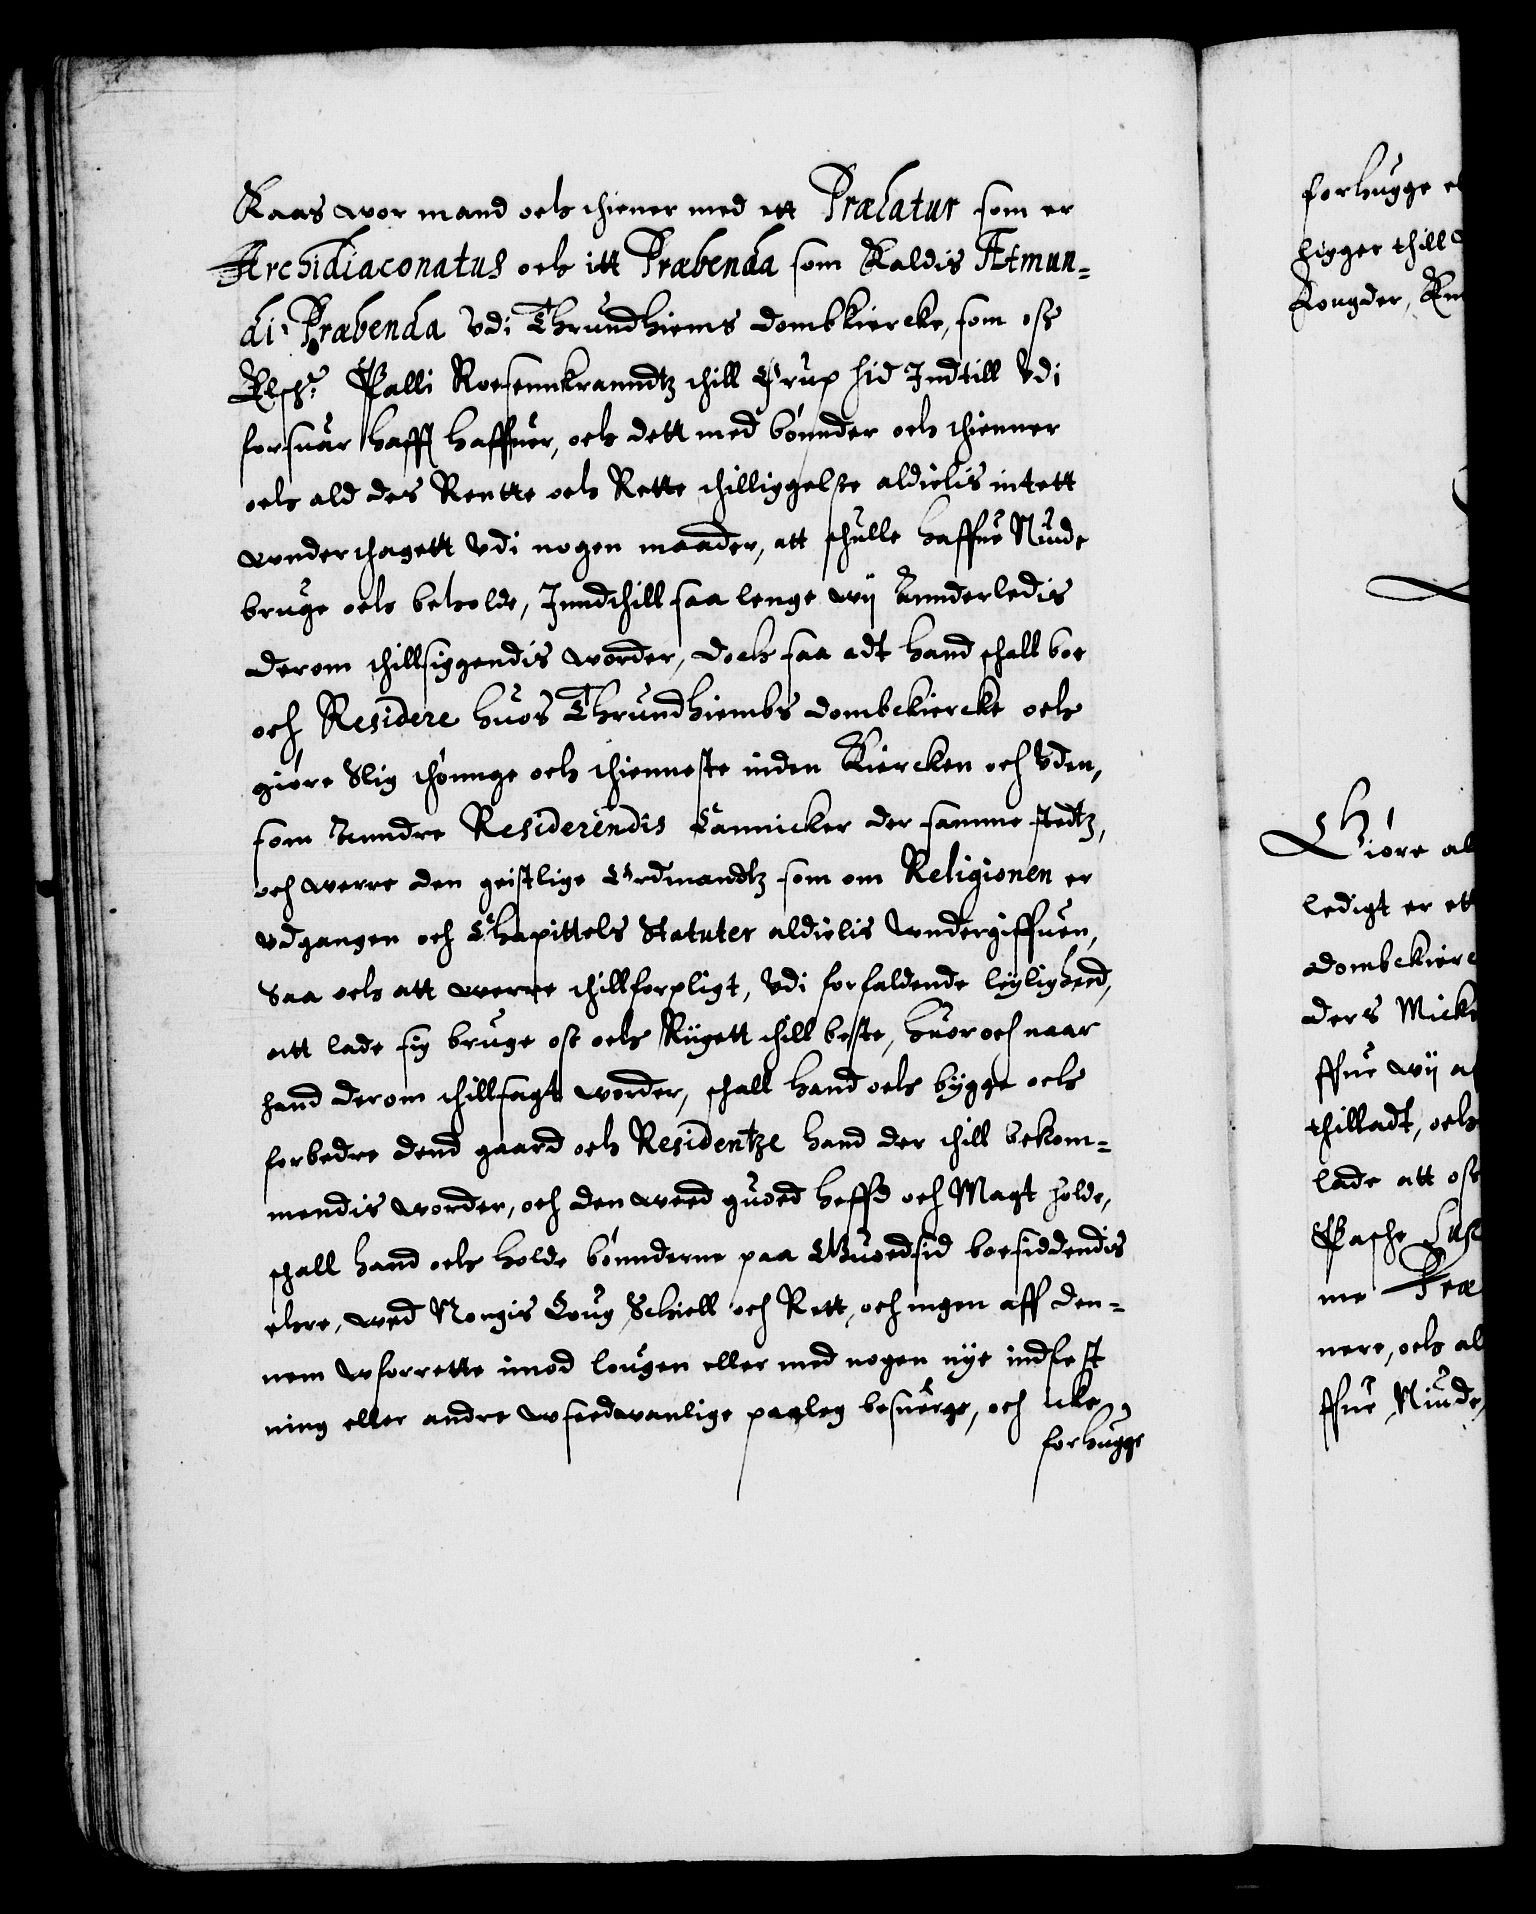 Kaas wor mand och thiener med ett Prælatur som er
Archidiaconatus och itt Præbenda som Kaldis Atmun-
di Præbenda Vdi Thrundhiems dombkiercke, som oss
Elsch: Palli Roesennkranndtz thill Ørup hid Indtill Vdi
forsuar hafft haffuer, och dett med bønnder och thienner
och ald des Rentte och Rette thilliggelse aldielis intett
wnderthagett Vdi nogen maader, att schulle haffue Niude
bruge och beholde, Inndthill saa lenge wij Annderledis
derom thillsiggendis worder, doch saa adt hand schall boe
och Residere huos Thrundhiembs dombekiercke och
giøre Slig thønnge och thienneste inden Kiercken och Vden,
som Anndre Residerendis Cannicker der samme stedtz,
och werre den geistlige Ordinandtz som om Religionen er
vdgangen och Chapittels Statuter aldielis Vndergiffuen,
Saa och att werre thillforpligt, Vdi forfaldende leylighed,
att lade sig bruge oss och Riigett thill beste, huor och naar
hand derom thillsagt worder, schall hand och bygge och
forbedre dend gaard och Residentze hand der thill bekom-
mendis worder, och den weed guoed heffd och Magt holde,
schall hand och holde bønnderne paa Guoedsid boesiddendis
ehre, wed Norgis Loug Schiell och Rett, och ingen aff den-
nem wforrette imod lougen eller med nogen nye indfest
ning eller andre wseedwanlige paaleg besuerge, och icke
forhugge
forhugge
ligger thill
Longder,
Giøre al
ledigt er ett
dombekierc
ders
ffue wij a
thilladt, och
lade att oss
Pasche
me Præ
nere, och al
ffue Niude,